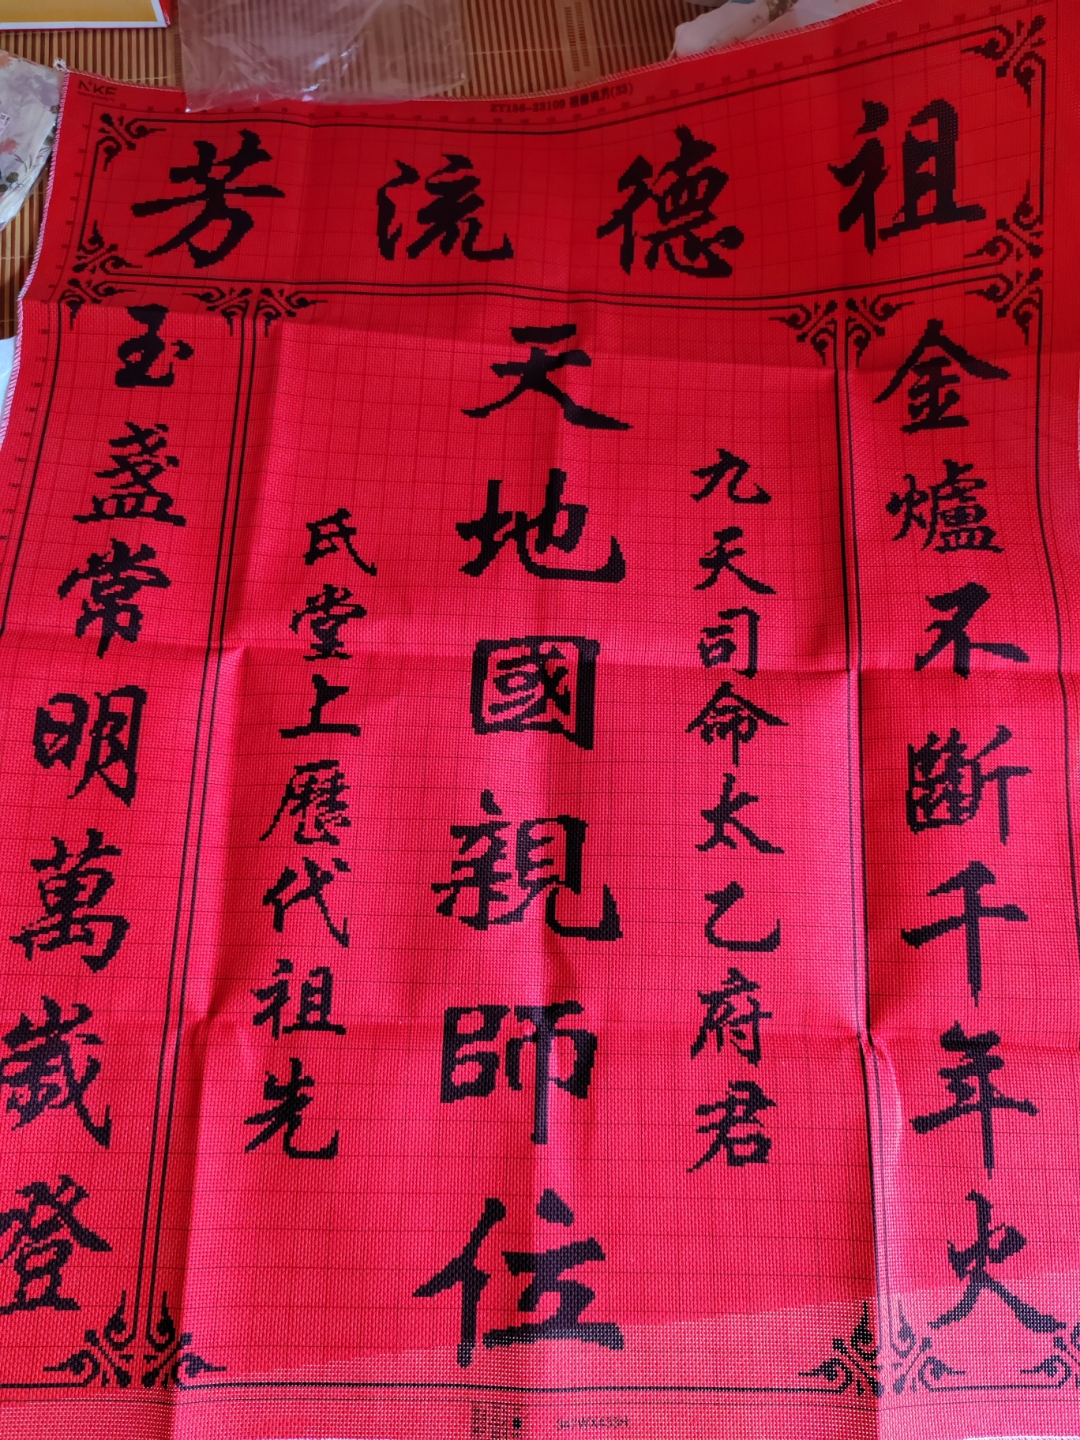 祖德流芳
金爐不斷千年火
九天司命太乙府君
天地國親師位
氏堂上歷代祖先
玉盏常明萬歲登